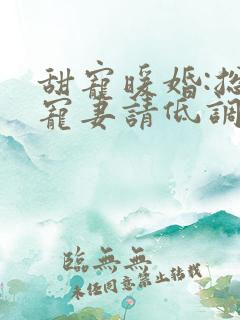 甜寵暖婚:
寵妻請低調
臨無無
未经同意禁止转载